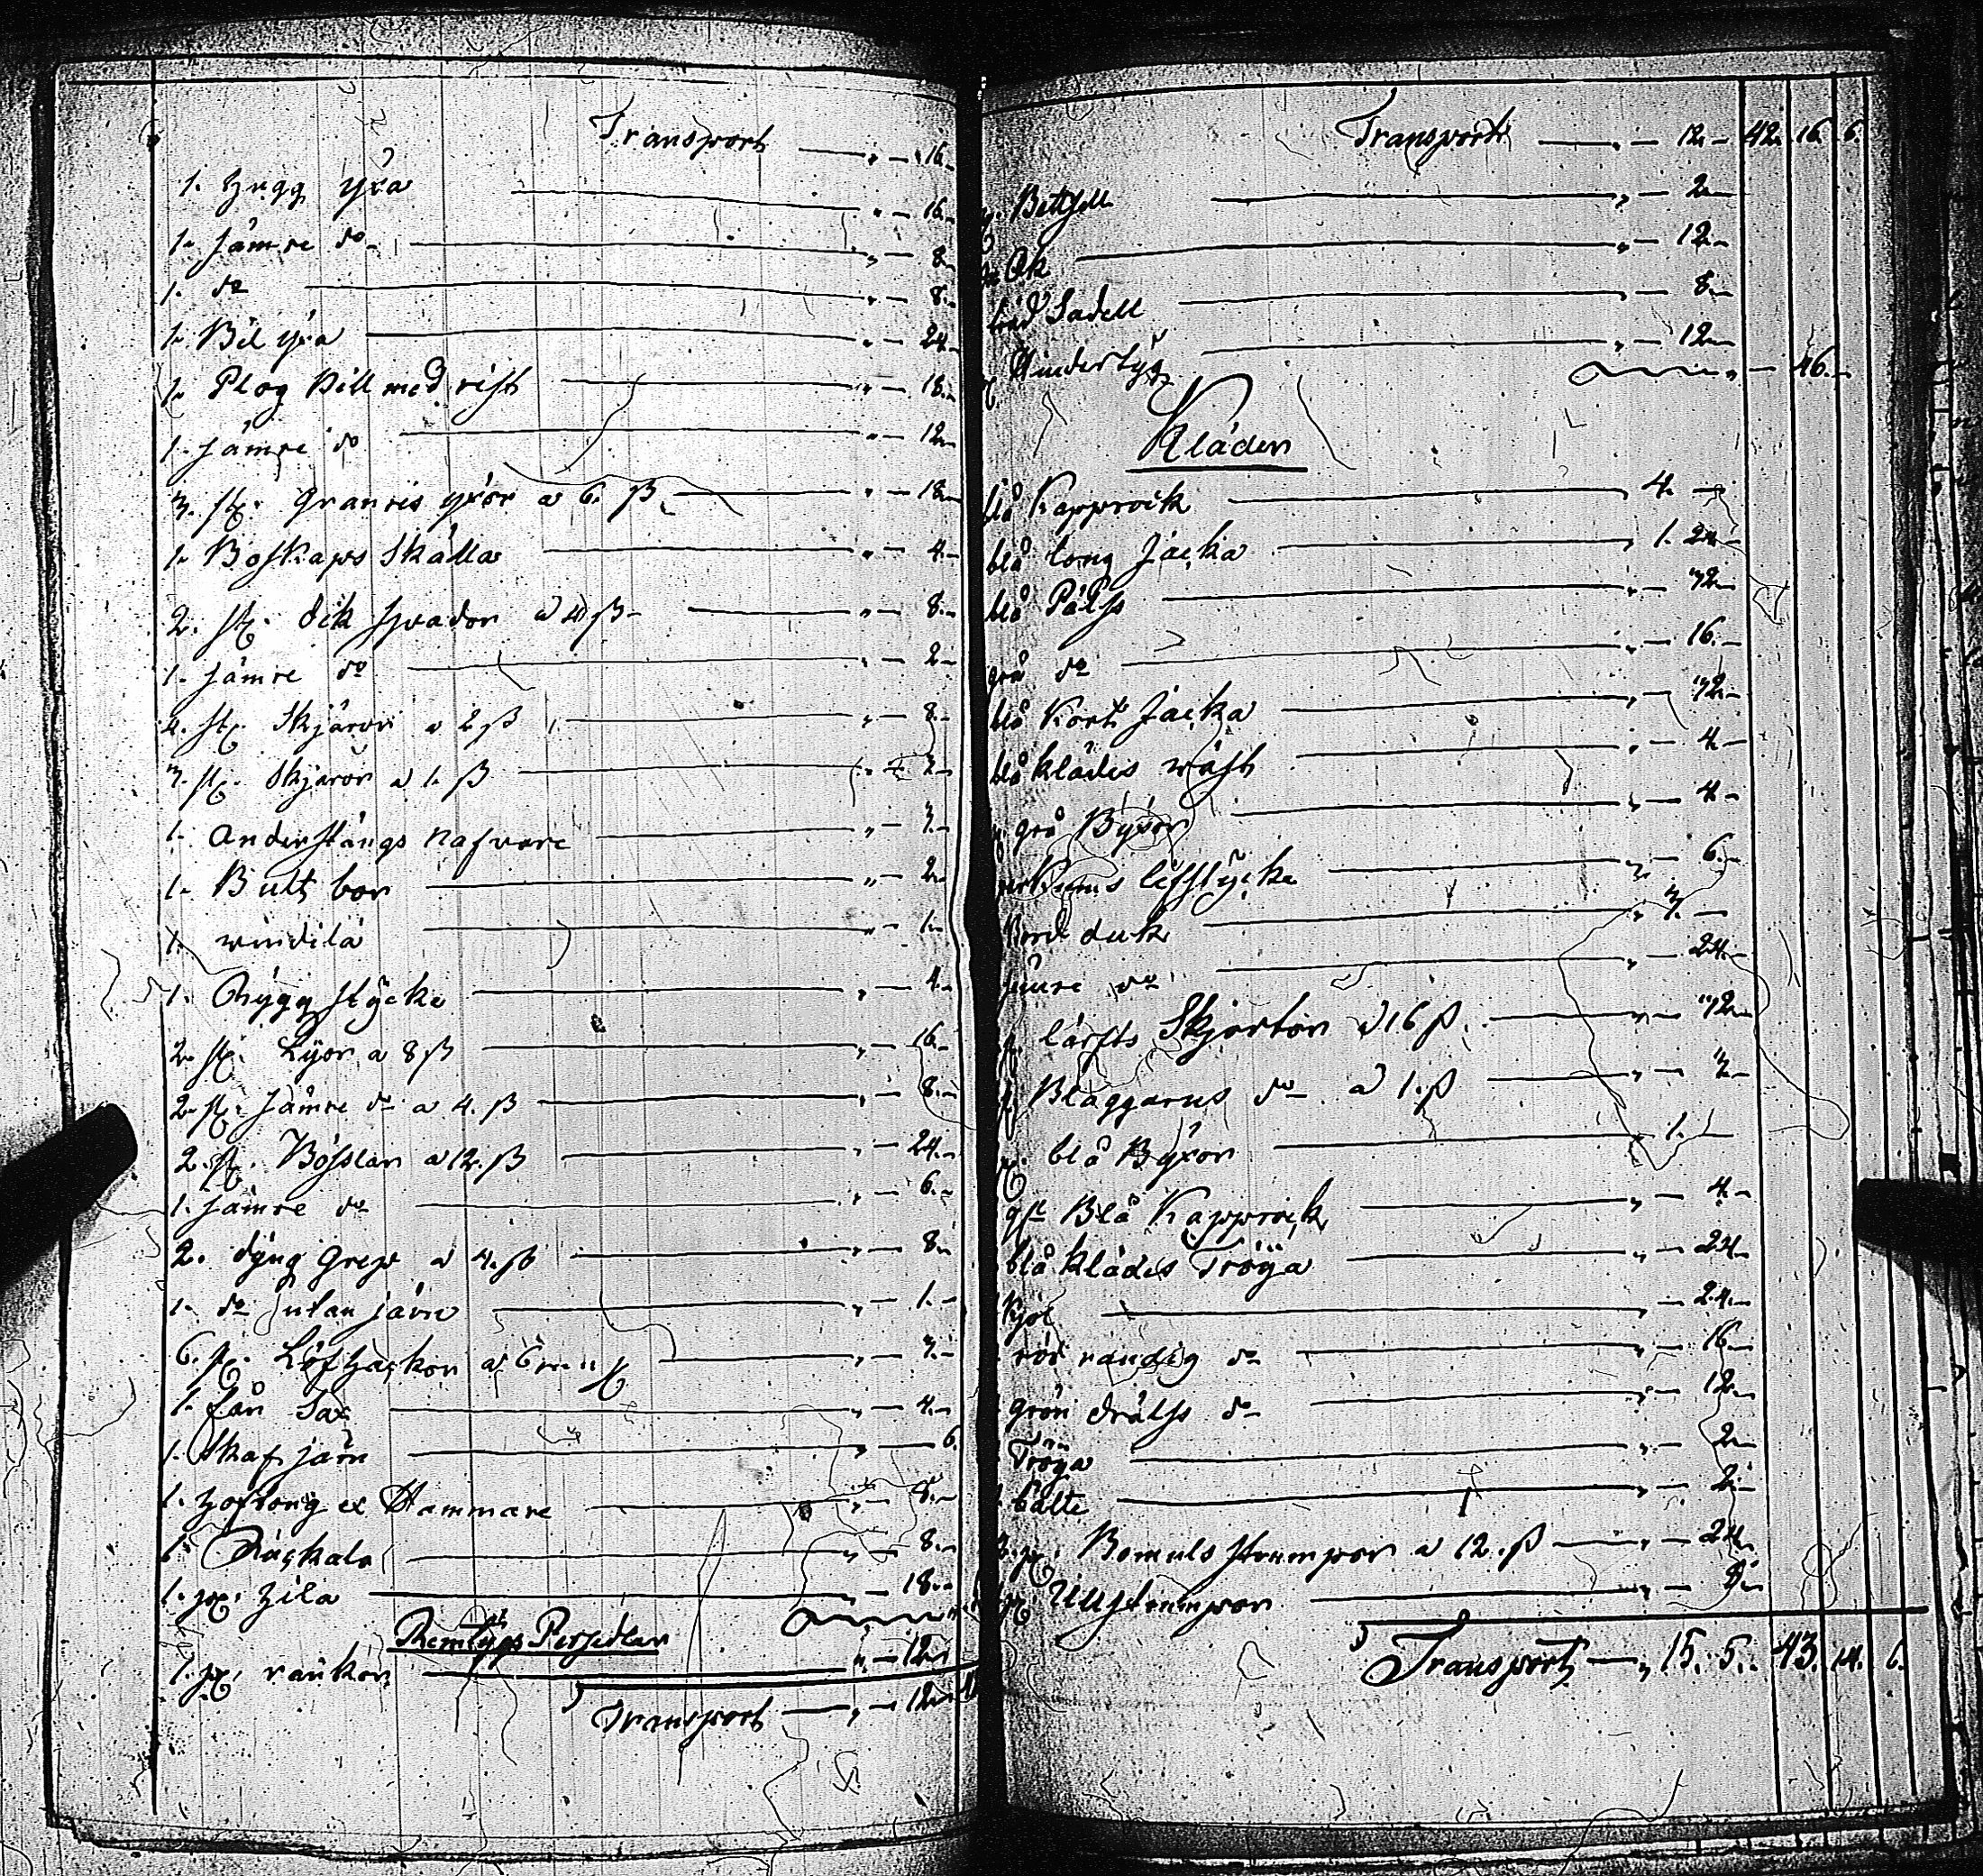 Transport — „ — 16.
1. Hugg yxa — „ — 16.
1. Sämre do — „ — 8.
1. do — „ — 8.
1. Bil yxa — „ — 24.
1. Plog bill med rist — „ — 18.
1. Sämre do — „ — 12.
3. st. Granris yxor a 6. ß — „ — 18.
1. Boskaps Skälla — „ — 4.
2. st. dik spador a 4 ß — „ — 8.
1. Sämre do — „ — 2.
4. st. Skjäror a 2 ß — „ — 8.
3. st. Skjäror a 1. ß — „ — 3.
1. Anderstångs Nafvare — „ — 3.
1. Bult bor — „ — 2.
1. — „ — 1.
1. Rygg stycke — „ — 4.
2. st. Lyor a 8 ß — „ — 16.
2. st. Sämre do a 4. ß — „ — 8.
2. st. Böslar a 12. ß — „ — 24.
1. Sämre do — „ — 6.
2. dyng Grep a 4. ß — „ — 8.
1. do utan järn — „ — 1.
6. st. Löfhackor a 6 — „ — 3.
1. får Sax — „ — 4.
1. Skaf järn — „ — 6.
1. Hoftong et Hammare — „ — 8.
1. Räckala — „ — 8.
1. pr. — „ — 18.
Remtygs Persedlar
1. pr. rankor — „ — 12.
Transport — „ — 12.
Transport — „ — 12. 42. 16. 6.
Bettsell — „ — 2.
Ok — „ — 12.
Sadell — „ — 8.
Hindertyg — „ — 12. — 46.
Kläder
blå Kapprock — 4. —
blå long Jacka — 1. 24.
blå Päls — „ — 32.
grå do — „ — 16.
blå Kort Jacka — „ — 32.
blå klädes wäst — „ — 4.
grå Byxor — „ — 4.
lifstycke — „ — 6.
Bord duk — „ 3. —
Sämre do — „ — 24.
lärfts Skjortor a 16 ß. — „ — 32.
Blaggarns do a 1. ß — „ — 3.
blå Byxor — 1. —
Blå Kapprock — „ — 4.
blå klädes Tröya — „ — 24.
Kjol — „ — 24.
röd randig do — „ — 16.
grön do — „ — 12.
Tröya — „ — 2.
bälte — „ — 2.
pr. Bomuls strumpor a 12. ß — „ — 24.
pr. Ullstrumpor — „ — 8.
Transport — „ 15. 5. 43. 14. 6.